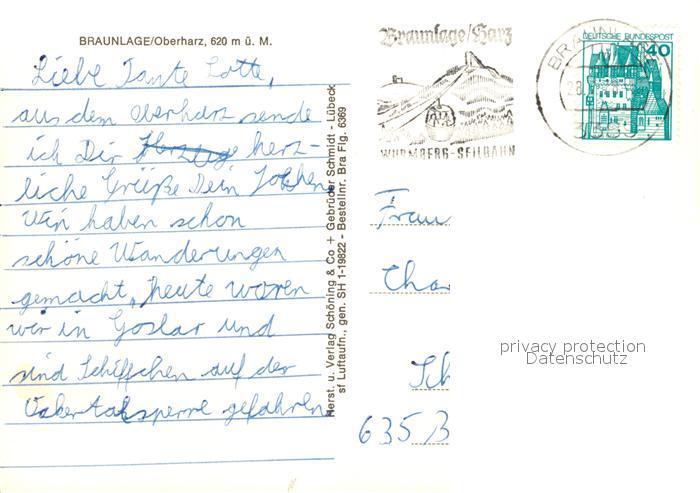 BRAUNLAGE/Oberharz, 620 m ü. M.
Liebe Tante Lotte,
aus dem Oberharz sende
ich Dir herz-
liche Grüße Dein Jochen
Wir haben schon
schöne Wanderungen
gemacht, heute waren
wir in Goslar und
sind Schiffchen auf der
Okertalsperre gefahren
Herst. u. Verlag Schöning & Co + Gebrüder Schmidt - Lübeck
sf Luftaufn., gen. SH 1-19822 - Bestellnr. Bra Flg. 6369
Braunlage/Harz
WURMBERG-SEILBAHN
DEUTSCHE BUNDESPOST
40
Frau
Cha
Sch
635 B
privacy protection
Datenschutz